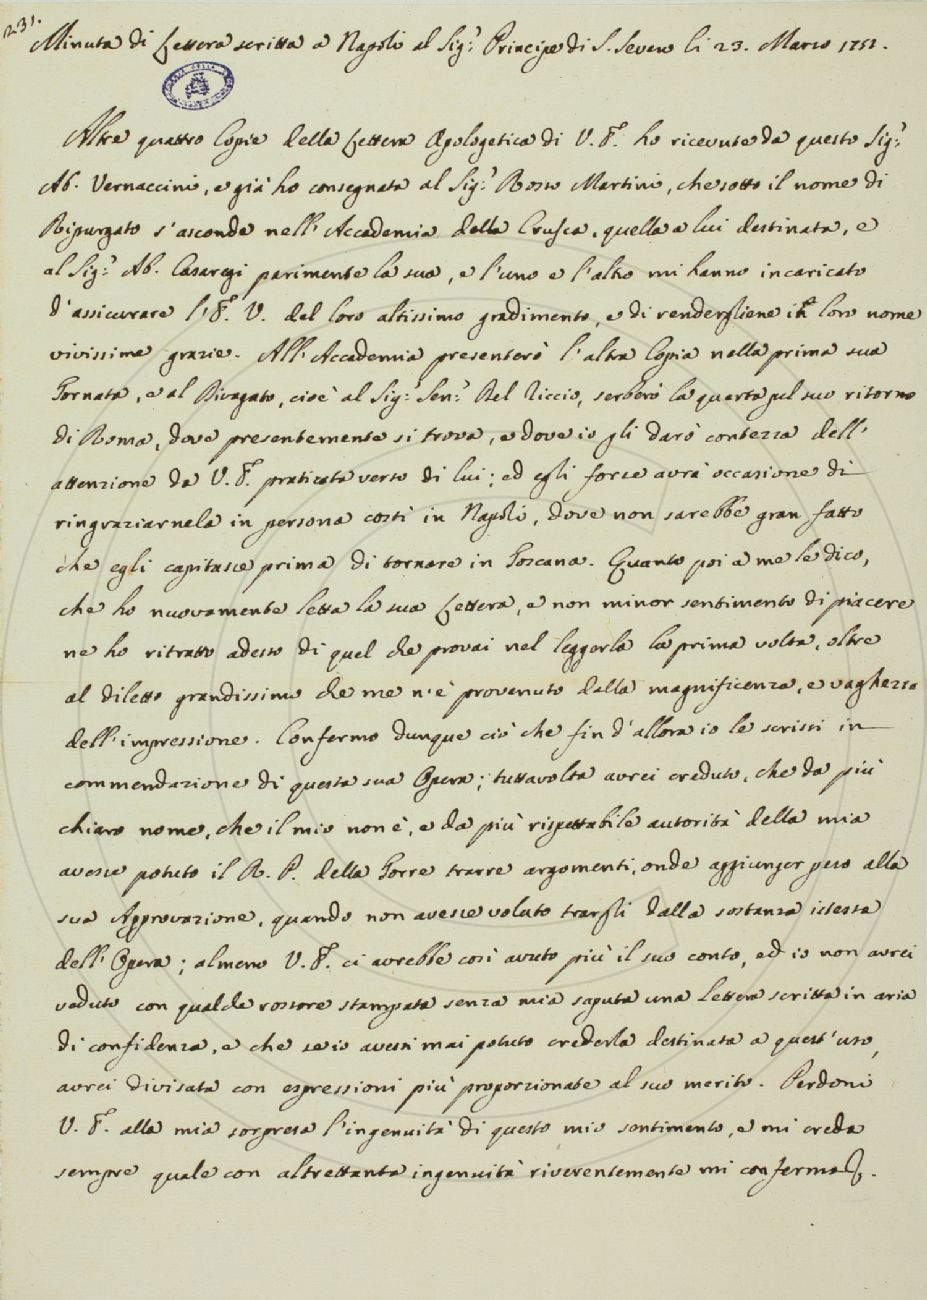 231.
Minuta di Lettera scritta a Napoli al Sig.r Principe di S. Severo li 23. Marzo 1751.
Altre quattro Copie della Lettera Apologetica di V. E. ho ricevute da questo Sig.r
Ab. Vernaccini, e già ho consegnata al Sig.r Rosso Martini, che sotto il nome di
Ripurgato s'asconde nell'Accademia della Crusca, quella a lui destinata, e
al Sig.r Ab. Casaregi parimente la sua, e l'uno e l'altro mi hanno incaricato
d'assicurare l'E. V. del loro altissimo gradimento, e di rendergliene in loro nome
vivissime grazie. All'Accademia presenterò l'altra Copia nella prima sua
Tornata, e al Rivagato, cioè al Sig.r Sen.r Del Riccio, serberò la quarta pel suo ritorno
di Roma, dove presentemente si trova, e dove io gli darò contezza dell'
attenzione da V. E. praticata verso di lui; ed egli forse avrà occasione di
ringraziarnela in persona costì in Napoli, dove non sarebbe gran fatto
che egli capitasse prima di tornare in Toscana. Quanto poi a me le dico,
che ho nuovamente letta la sua Lettera, e non minor sentimento di piacere
ne ho ritratto adesso di quel che provai nel leggerla la prima volta, oltre
al diletto grandissimo che me n'è provenuto dalla magnificenza, e vaghezza
dell'impressione. Confermo dunque ciò che fin d'allora io le scrissi in
commendazione di questa sua Opera; tuttavolta avrei creduto, che da più
chiaro nome, che il mio non è, e da più rispettabile autorità della mia
avesse potuto il R. P. della Torre trarre argomenti, onde aggiunger peso alla
sua Approvazione, quando non avesse voluto trargli dalla sostanza istessa
dell'Opera; almeno V. E. ci avrebbe così avuto più il suo conto, ed io non avrei
veduto con qualche rossore stampata senza mia saputa una Lettera scritta in aria
di confidenza, e che se io avessi mai potuto crederla destinata a quest'uso,
avrei divisata con espressioni più proporzionate al suo merito. Perdoni
V. E. alla mia sorpresa l'ingenuità di questo mio sentimento, e mi creda
sempre quale con altrettanta ingenuità riverentemente mi confermo